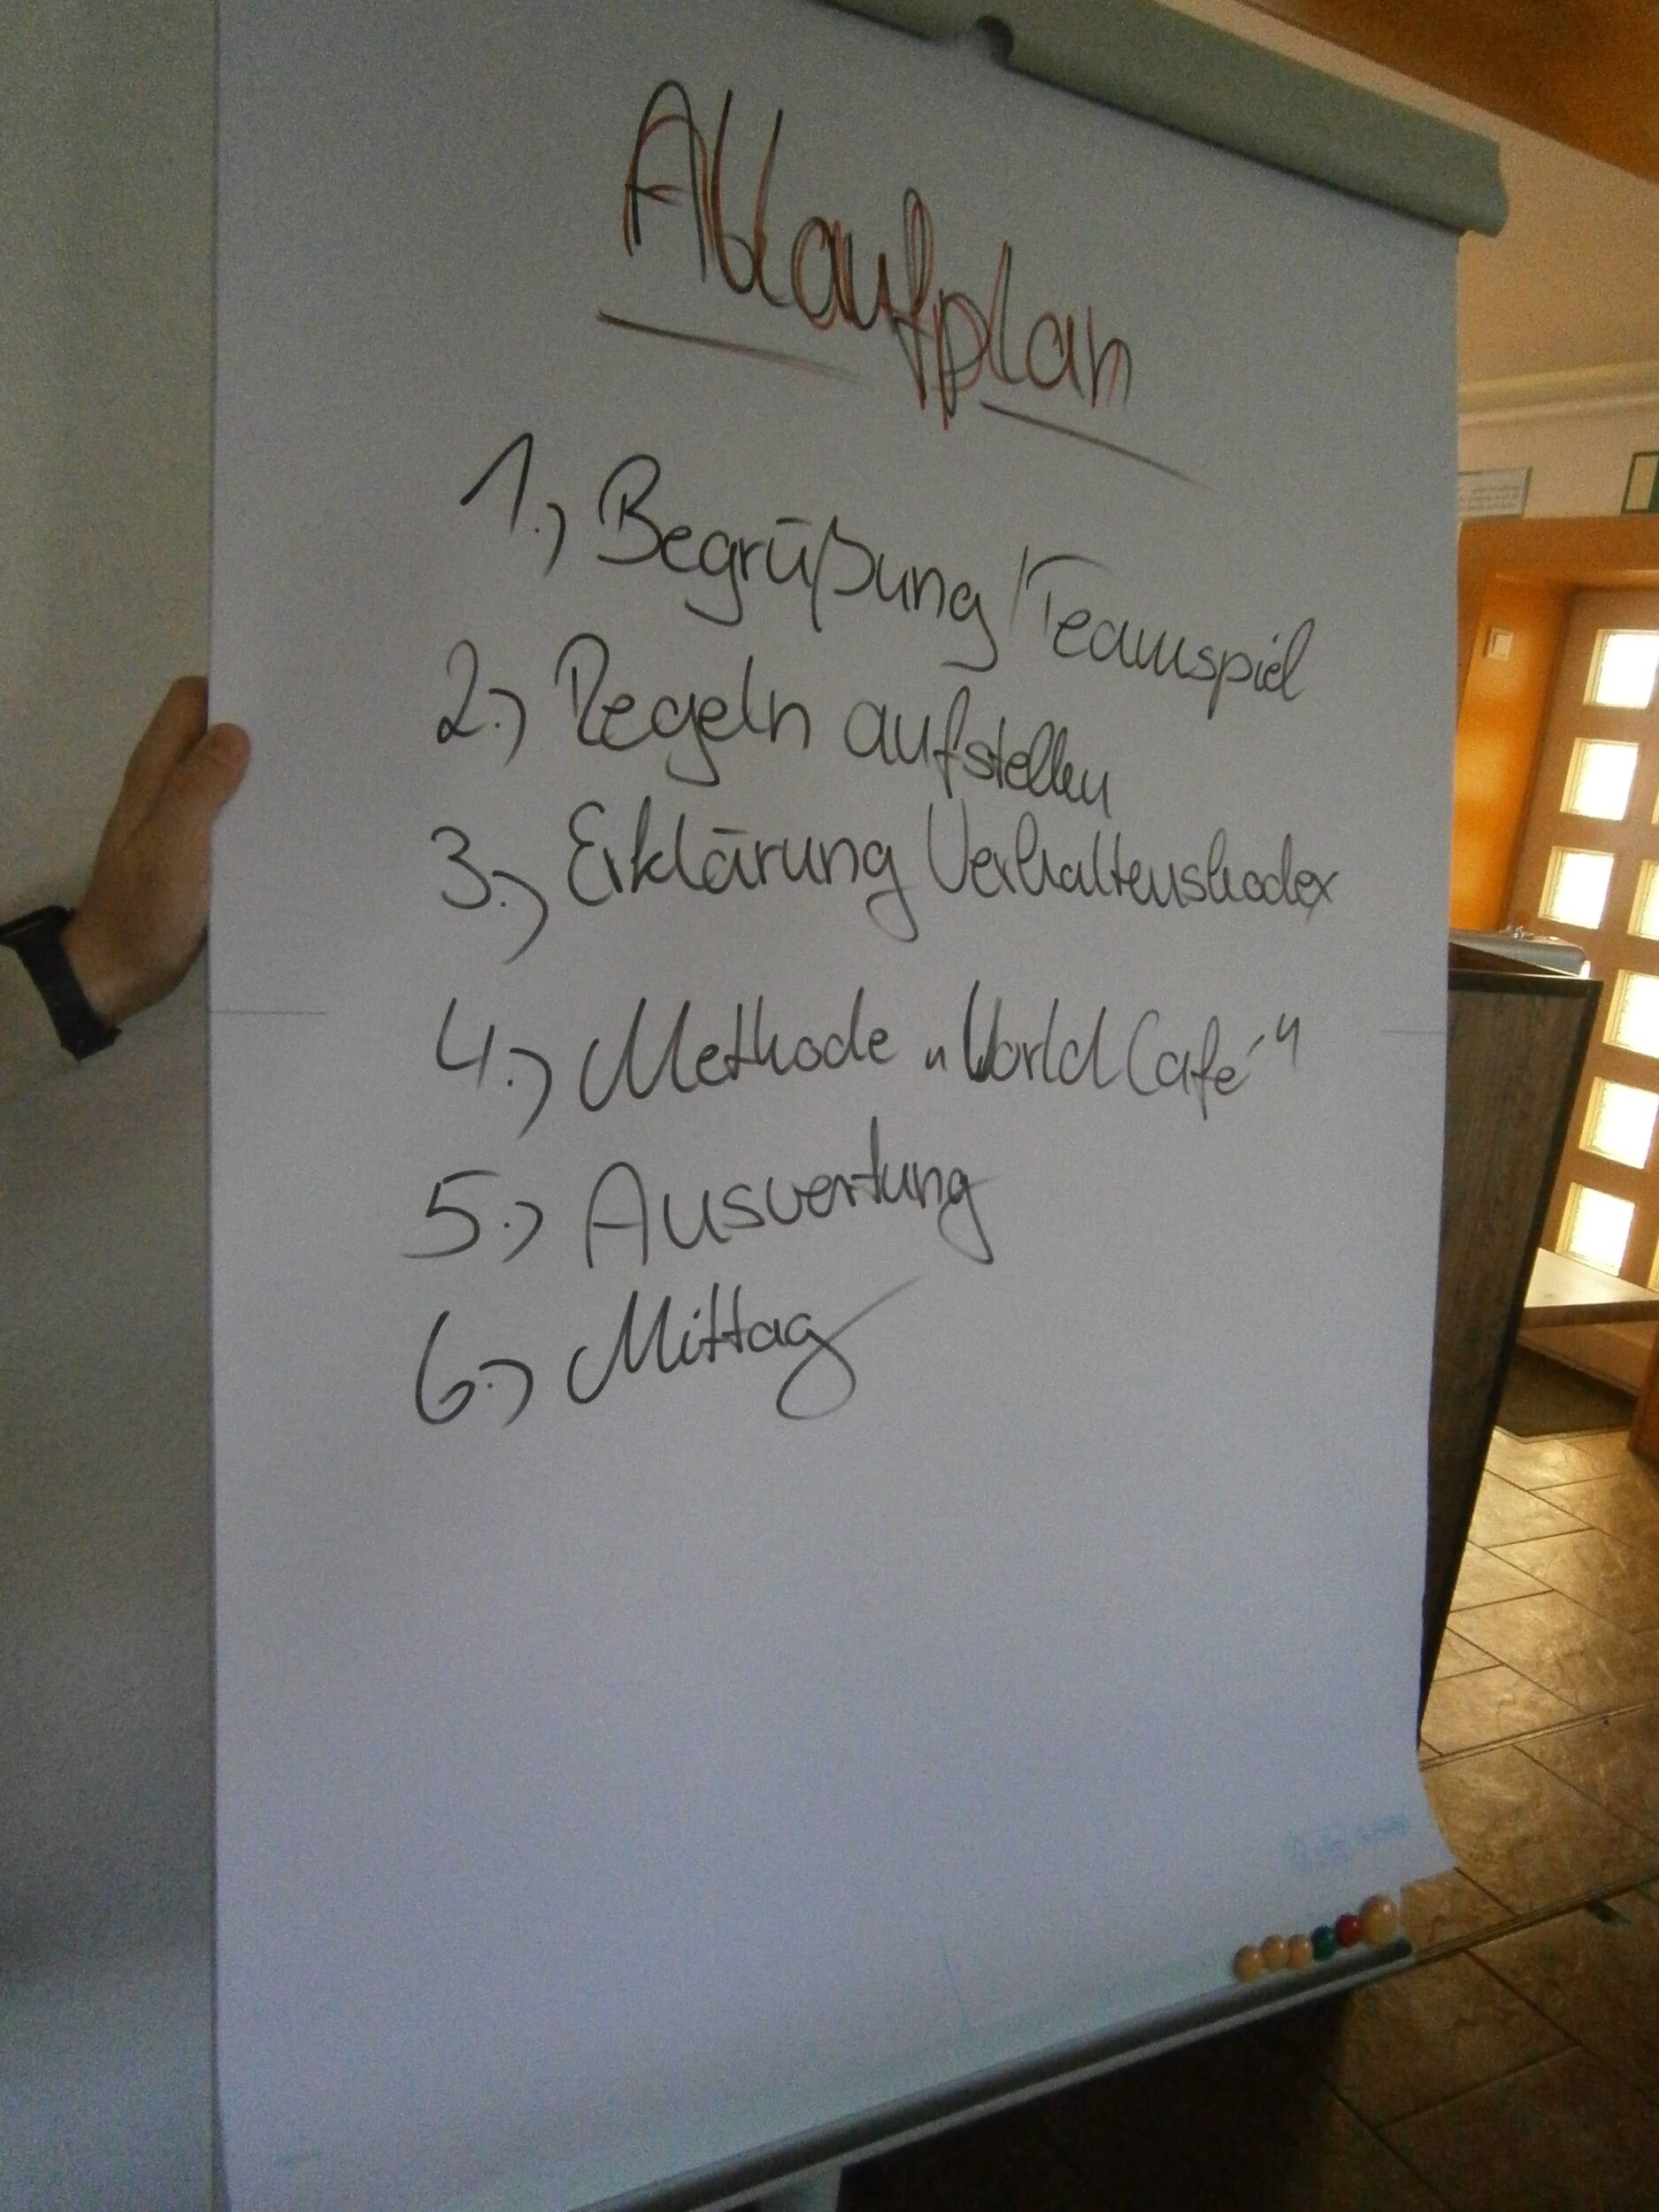 Ablaufplan
1.) Begrüßung / Teamspiel
2.) Regeln aufstellen
3.) Erklärung Verhaltenskodex
4.) Methode „World Café“
5.) Auswertung
6.) Mittag